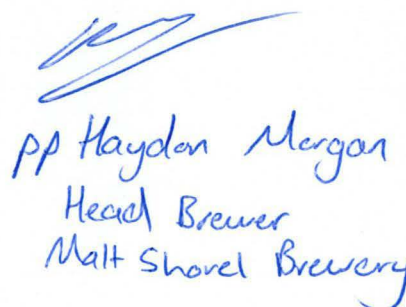 pp Haydon Morgan
Head Brewer
Malt Shovel Brewery